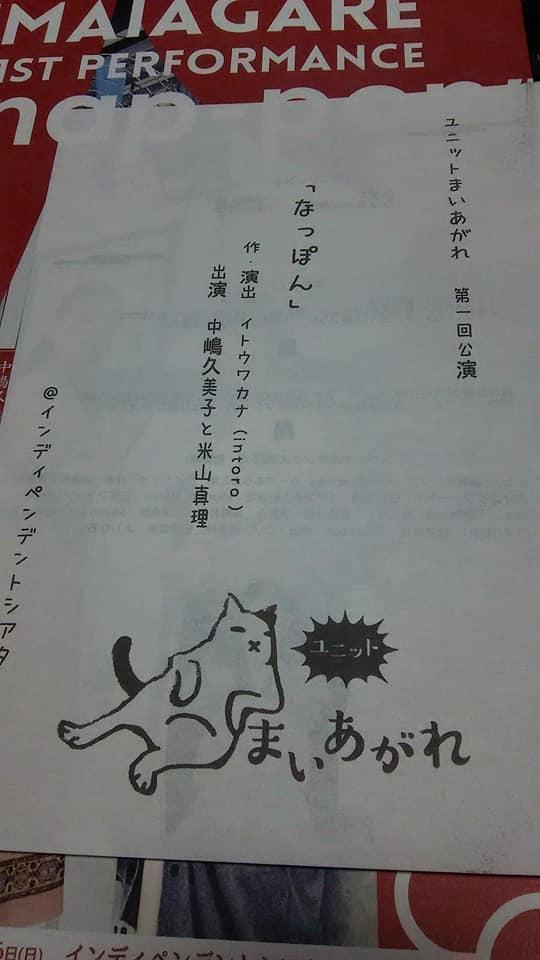 MAIAGARE
ST PERFORMANCE
nap-pon
ユニットまいあがれ 第一回公演
「なっぽん」
作・演出 イトウワカナ(intoro)
出演 中嶋久美子と米山真理
@インディペンデントシアタ
ユニット
まいあがれ
日(日) インディペンデント